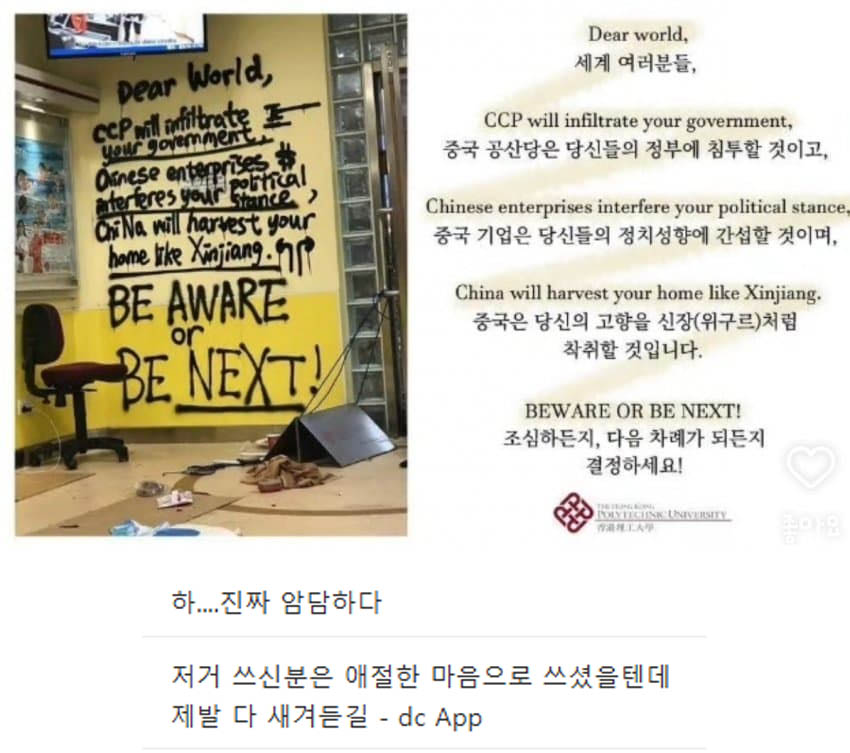 Dear World,
CCP will infiltrate
your government.
Chinese enterprises $
interferes your political
stance,
ChiNa will harvest your
home like Xinjiang.
BE AWARE
or
BE NEXT!
Dear world,
세계 여러분들,
CCP will infiltrate your government,
중국 공산당은 당신들의 정부에 침투할 것이고,
Chinese enterprises interfere your political stance,
중국 기업은 당신들의 정치성향에 간섭할 것이며,
China will harvest your home like Xinjiang.
중국은 당신의 고향을 신장(위구르)처럼
착취할 것입니다.
BEWARE OR BE NEXT!
조심하든지, 다음 차례가 되든지
결정하세요!
THE HONG KONG
POLYTECHNIC UNIVERSITY
香港理工大學
좋아요
하....진짜 암담하다
저거 쓰신분은 애절한 마음으로 쓰셨을텐데
제발 다 새겨듣길 - dc App